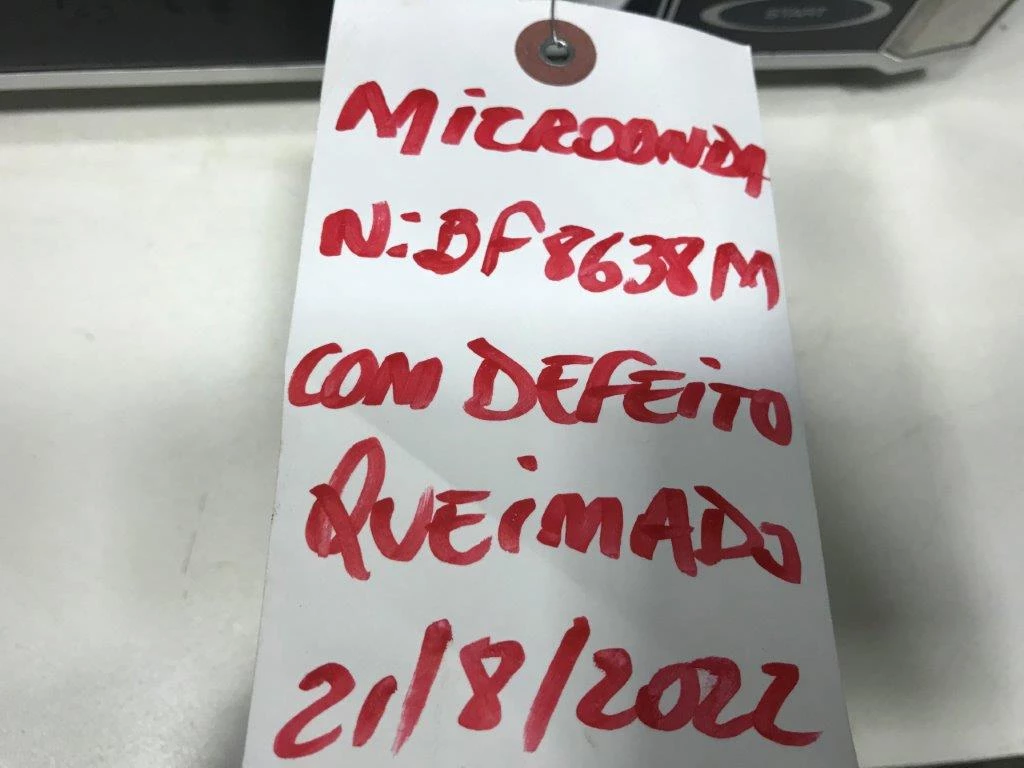 START
MiCROONDA
N:BF8638M
COM DEFEiTO
QUEiMADO
21/8/2022